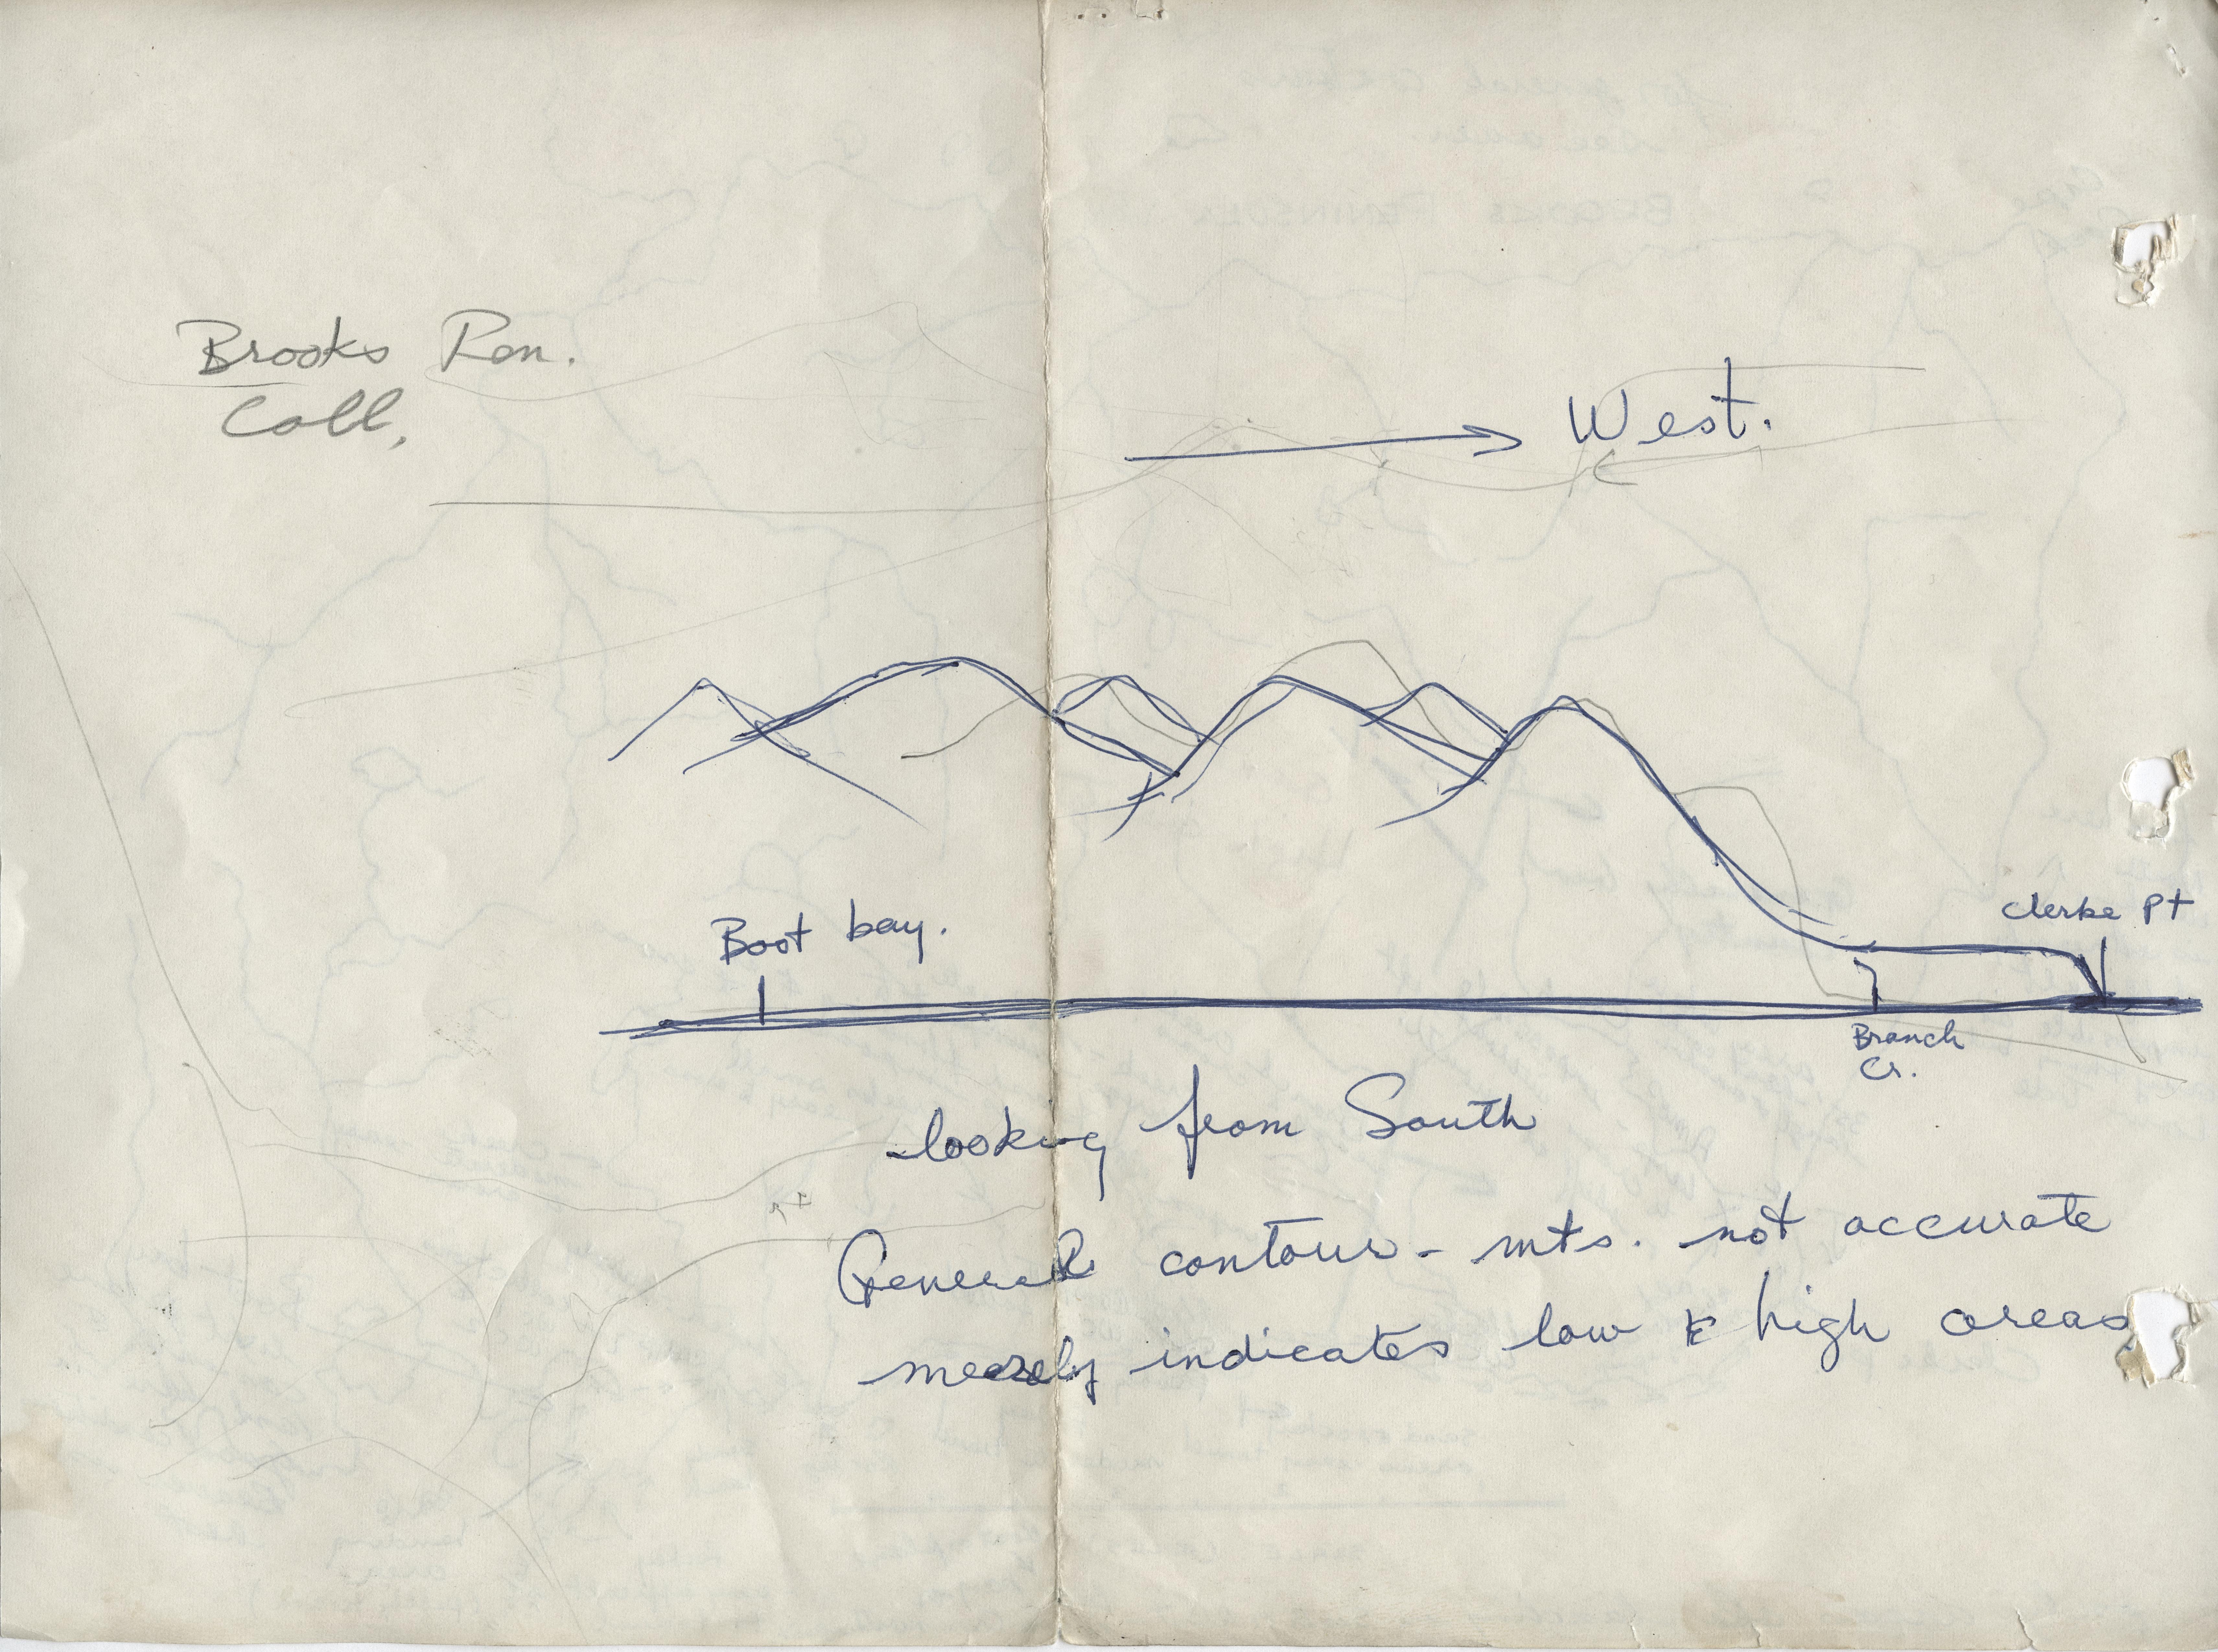 Brooks Pen.
Coll,
West.
Boot bay.
Clerke Pt
Branch
Cr.
looking from South
General contour - mts. not accurate
merely indicates low & high areas